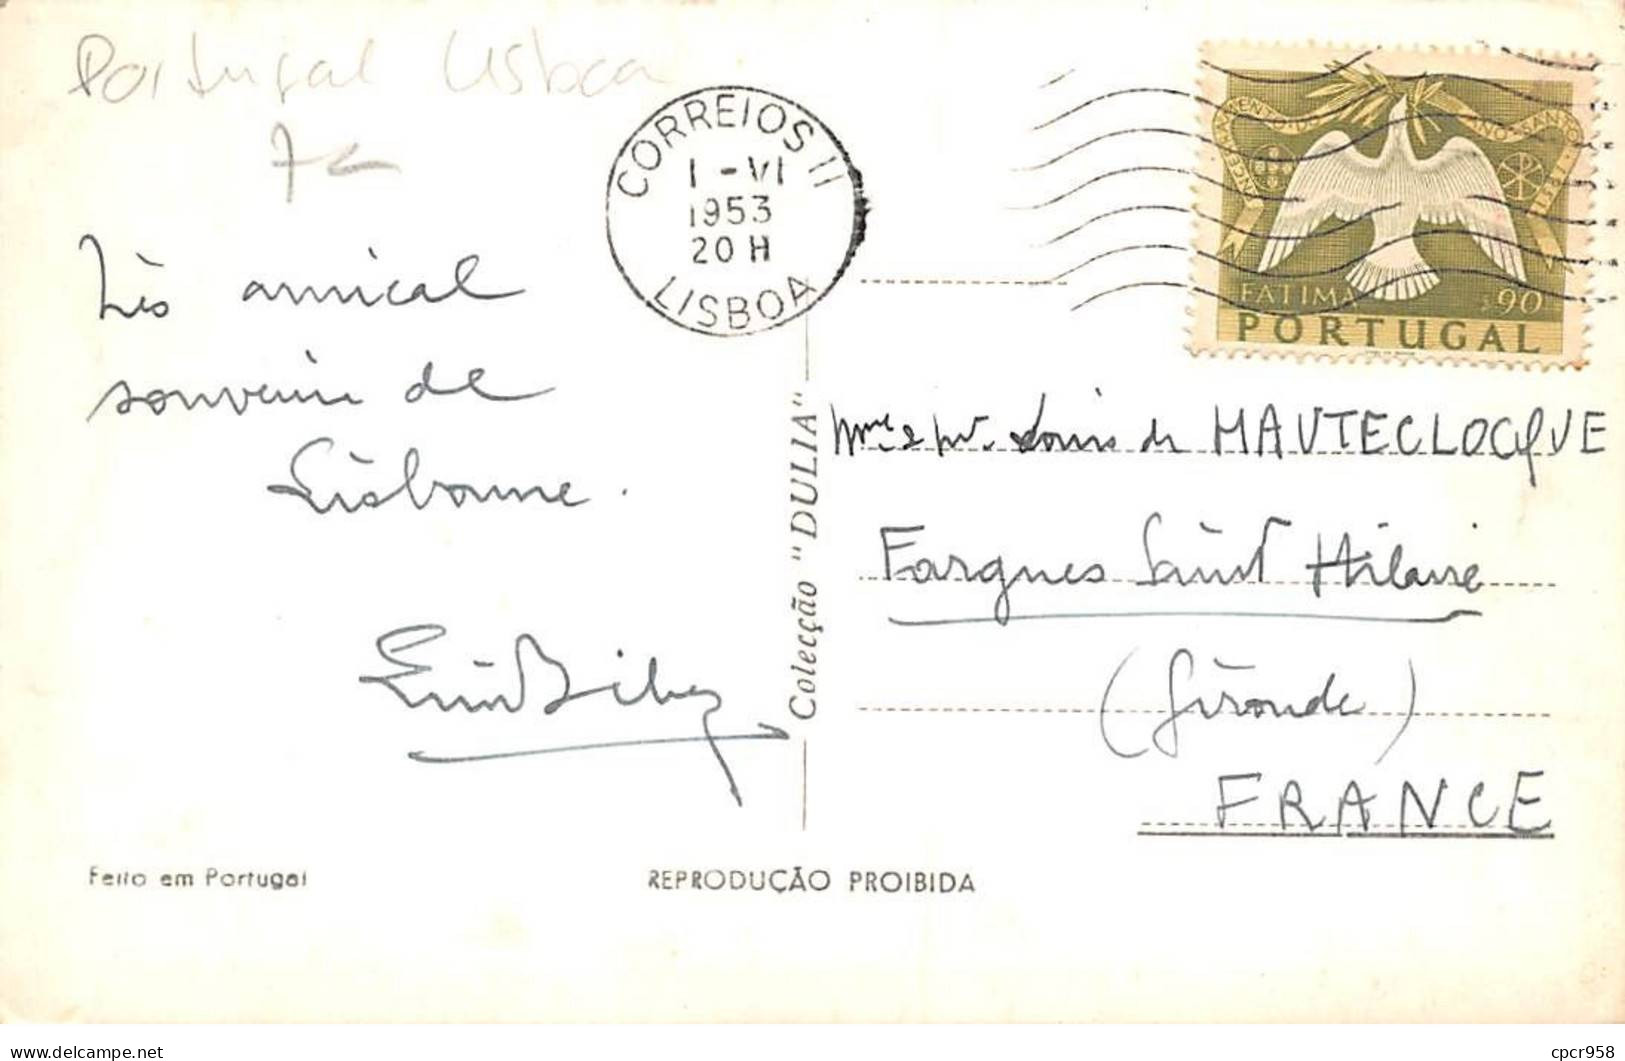 Portugal Lisboa
7€
CORREIOS II
1 - VI
1953
20 H
LISBOA
ENCERRAMENTO DO ANO SANTO 1951
FATIMA $90
PORTUGAL
Très amical
souvenir de
Lisbonne.
Colecção "DULIA"
Mme & Mr. Louis de HAUTECLOCQUE
Fargues Saint Hilaire
(Gironde)
FRANCE
Feito em Portugal
REPRODUÇÃO PROIBIDA
cpcr958